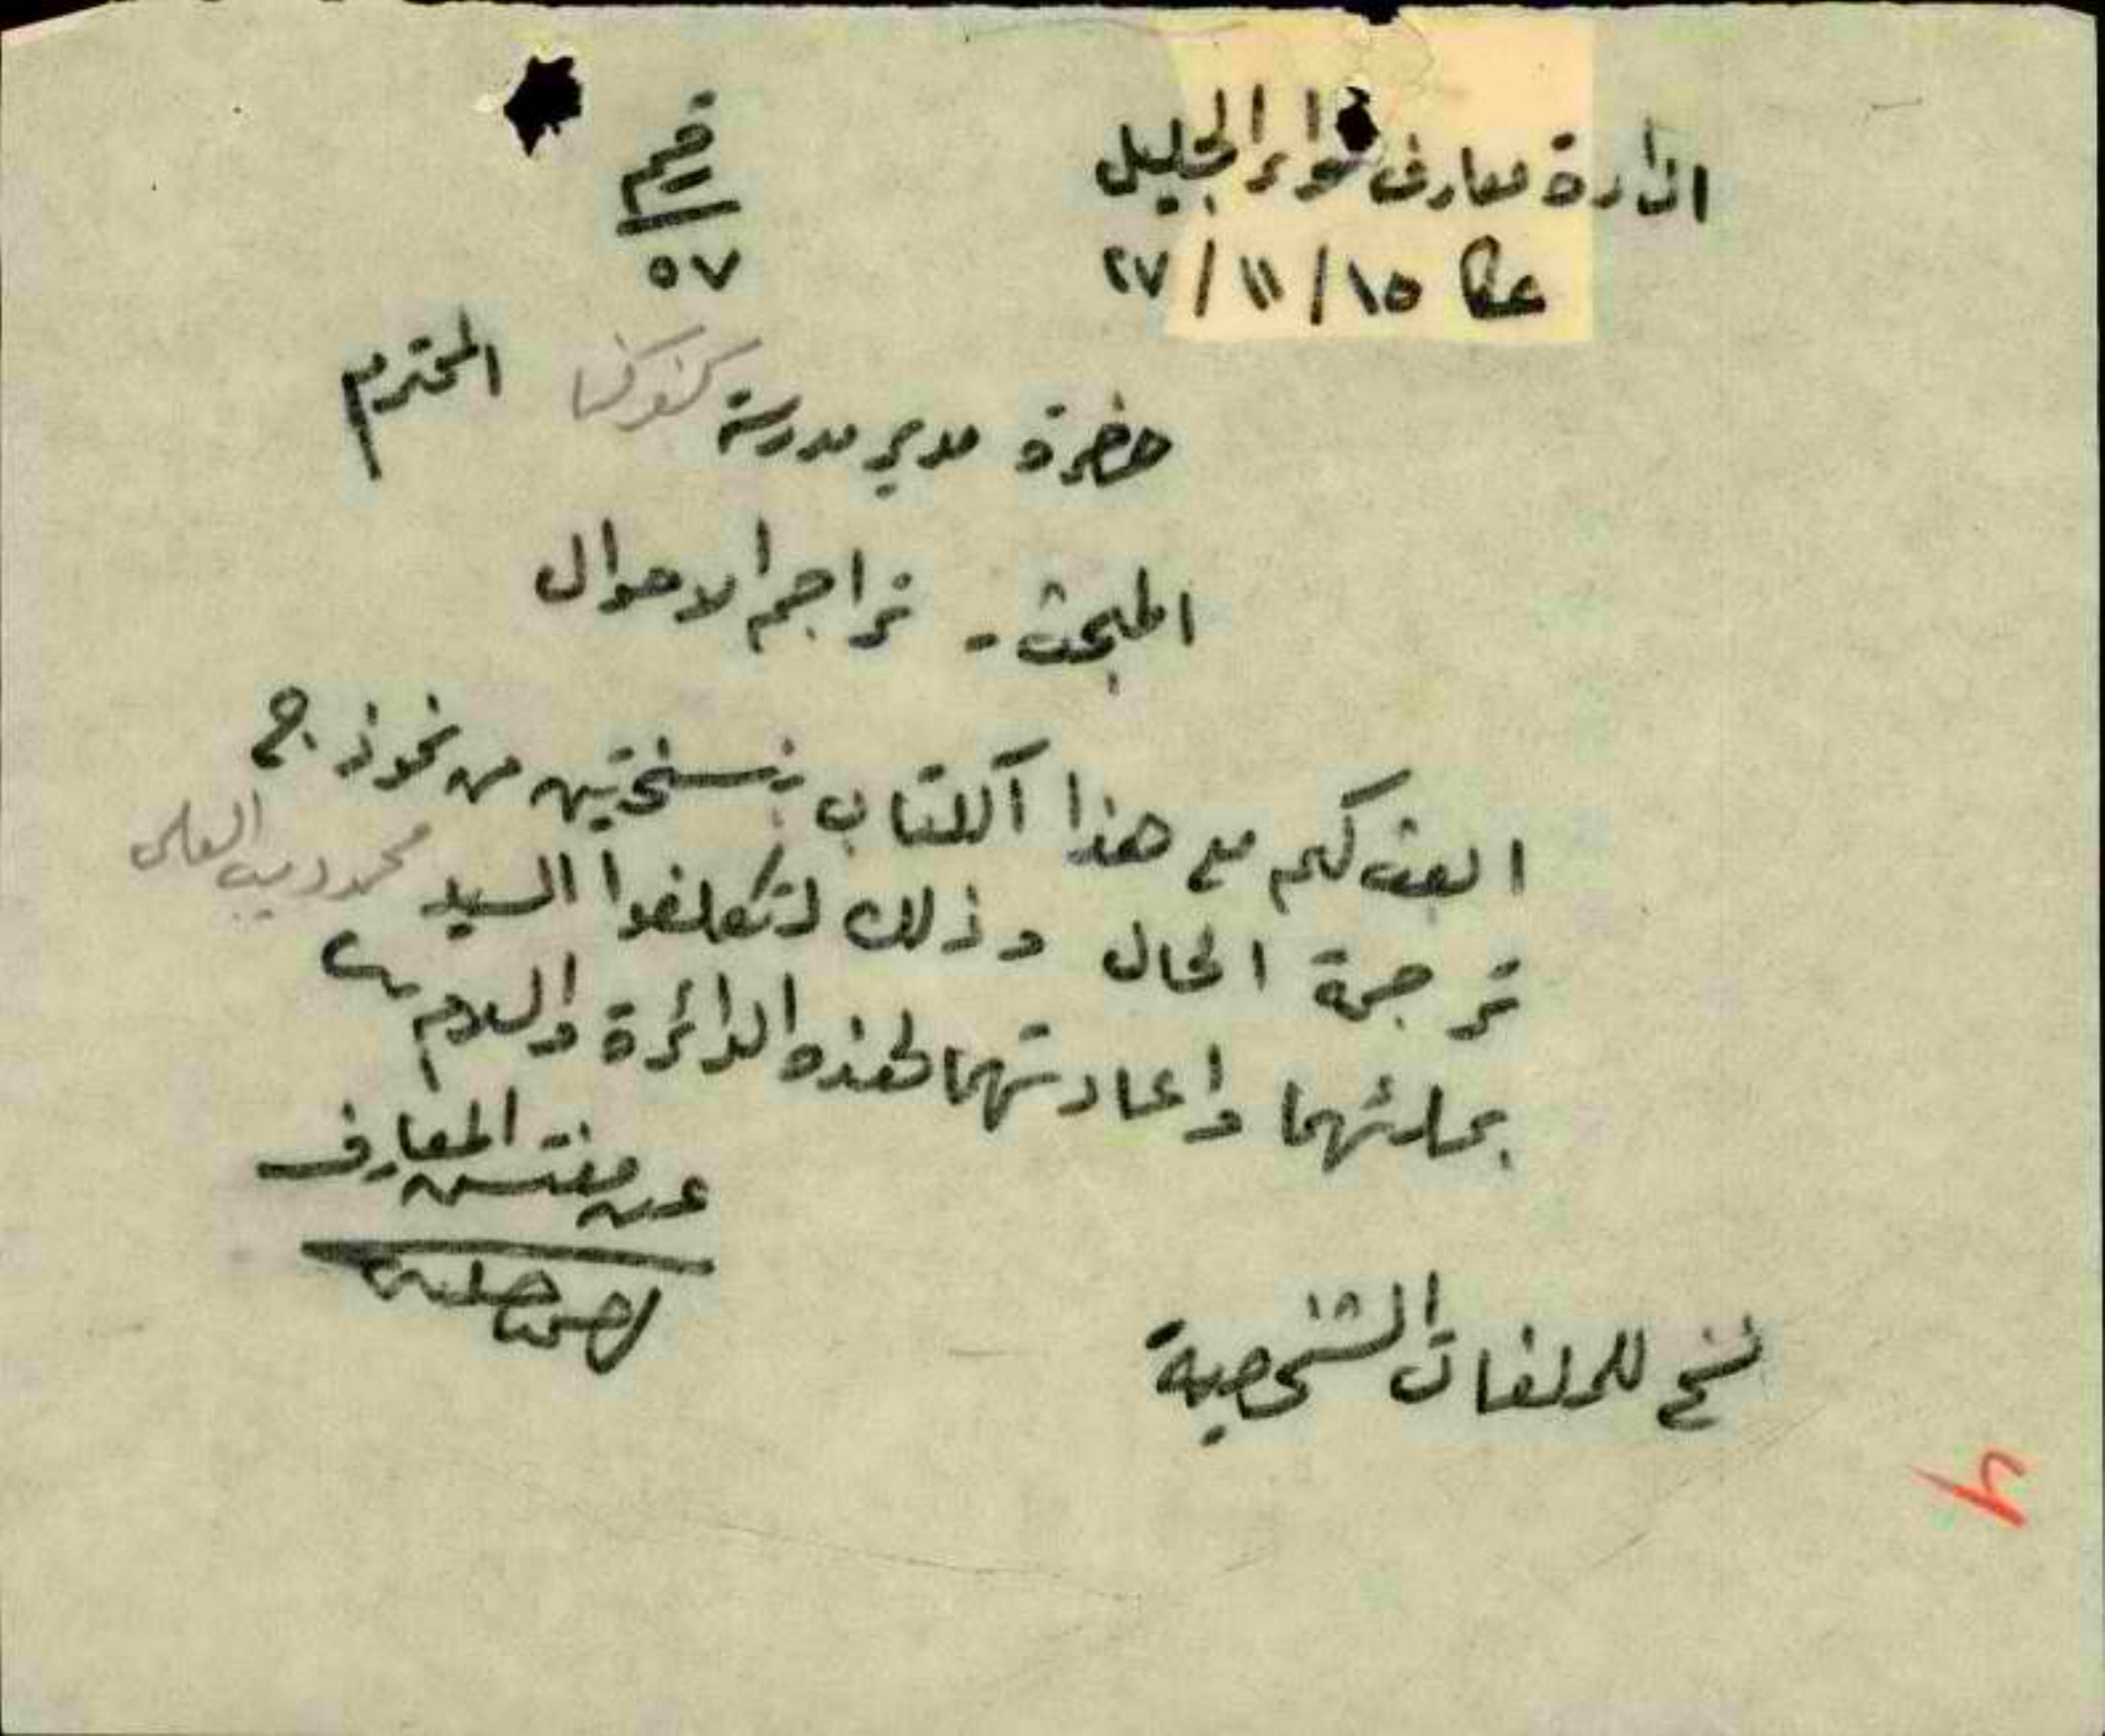 ادارة معارف لواء الجليل
رقم
٥٧
عكا ١٥/ ١١/ ٢٧
حضرة مدير مدرسة كفركنا المحترم
المبحث - تراجم الاحوال
ابعث لكم مع هذا الكتاب بنسختين من نموذج
ترجمة الحال وذلك لتكلفوا السيد محمود ديب العلي
بملئهما واعادتهما لهذه الدائرة والسلام
عن مفتش المعارف
نسخ للملفات الشخصية